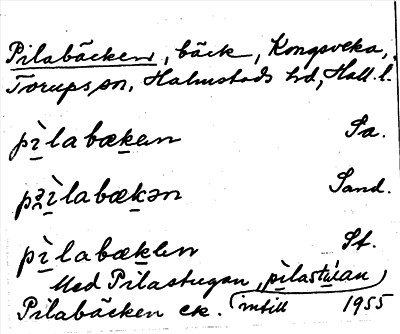 Pilabäcken, bäck, Kongsveka,
Torups sn, Halmstads hd, Hall. l.
pìlabæken Sa.
pìlabækən Sand.
pìlabæken St.
Med Pilastugan, pìlastúan
Pilabäcken ck. intill 1955